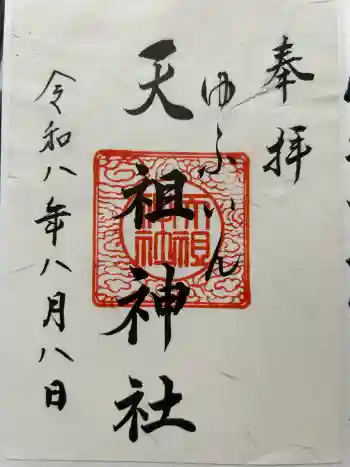 奉拝
ゆふいん
天祖神社
天祖神社
令和八年八月八日